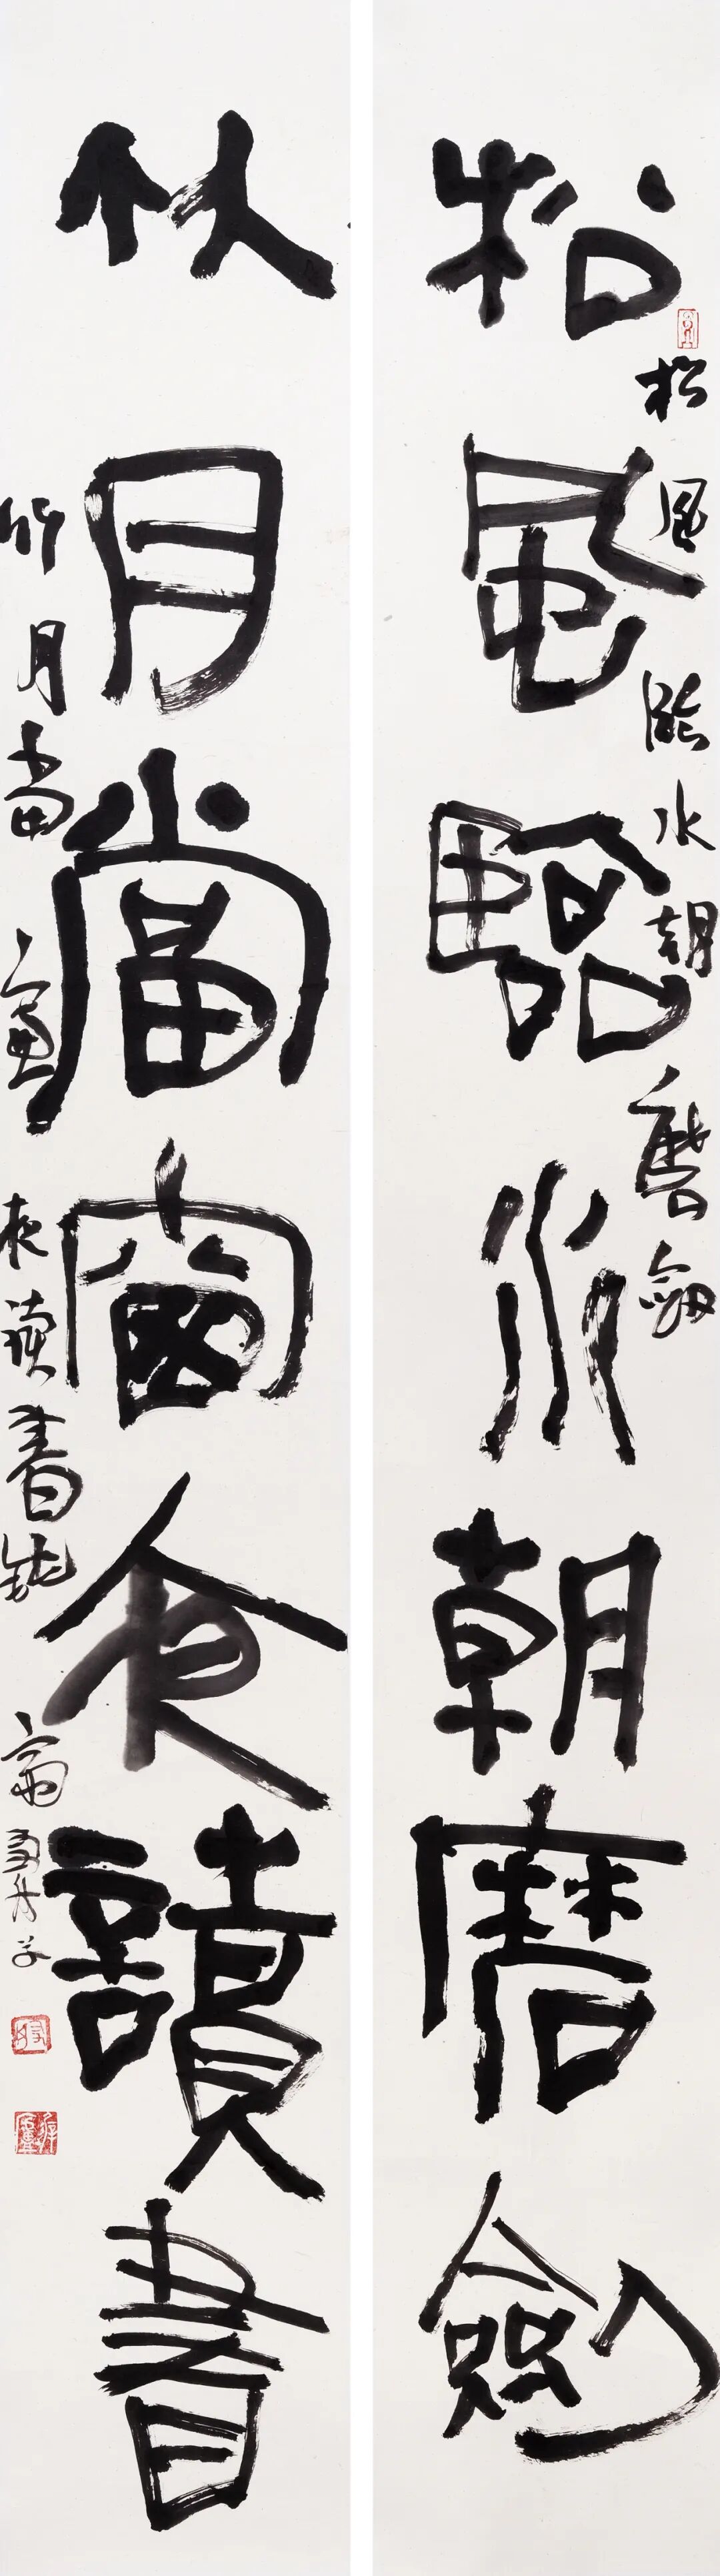 松風臨水朝磨劍
松风臨水朝磨劍
竹月當窗夜讀書
竹月當窗夜讀書